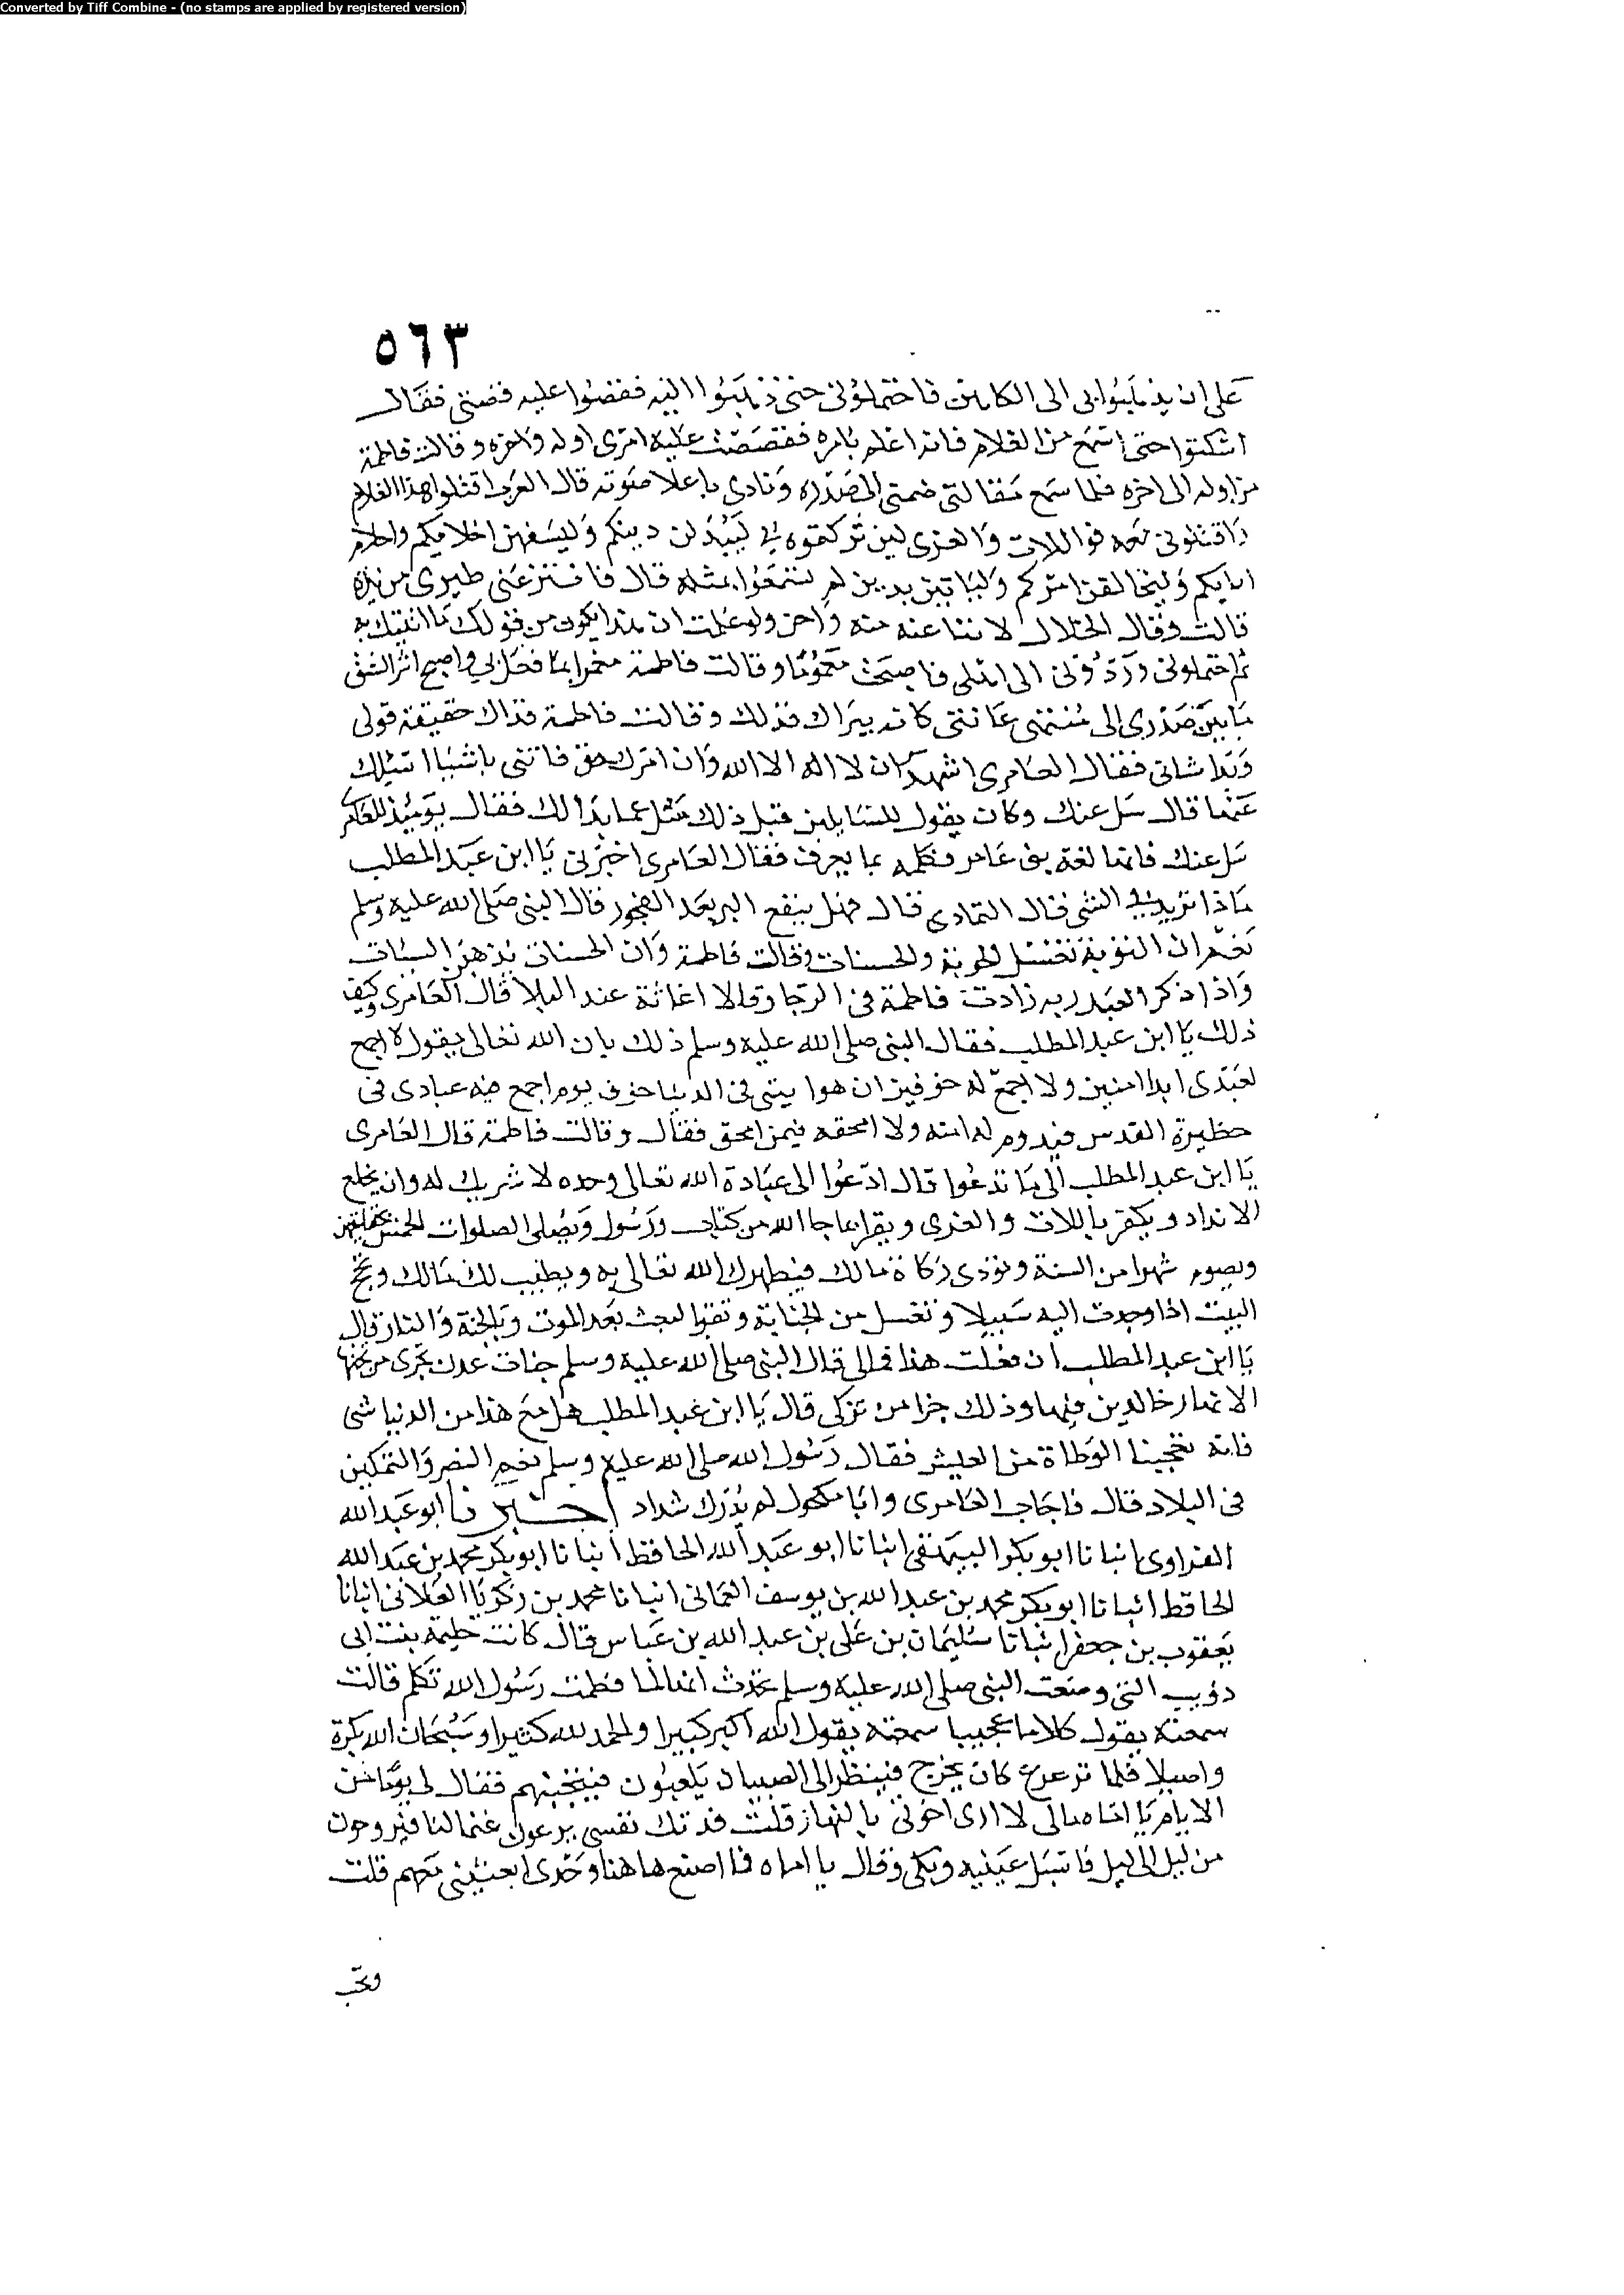 Converted by Tiff Combine - (no stamps are applied by registered version)
٥٦٣
على ان يذهبوا بي الى الكاهن فاحتملوني حتى ذهبوا اليه فقصوا عليه قصتي فقال
اسكتوا حتى اسمع من الغلام فانه اعلم بامره فقصصت عليه امري اوله واخره وقالت فاطمة
من اوله الى اخره فلما سمع مقالتي ضمني الى صدره ونادى باعلا صوته قال العرب اقتلوا هذا الغلام
واقتلوني معه فواللات والعزى لين تركتموه ليبدلن دينكم وليسفهن احلامكم واحلام
ابايكم وليخالفن امركم ولياتين بدين لم تسمعوا بمثله قال فانتزعني ظيري من يده
قالت وقال لا منه ولو علمت ان هذا يكون من قولك ما اتيتك به
ثم احتملوني وردوني الى اهلي فاصبحت مغموما وقالت فاطمة مما فعل بي واصبح اثر الشق
ما بين صدري الى عانتي كانه شراك فذلك وقالت فاطمة فذاك حقيقة قولي
وبدا شاني فقال العامري اشهد ان لا اله الا الله وان امرك حق فانبني باشيا اسئلك
عنها قال سل عنك وكان يقول للسايلين قبل ذلك سل عما بدا لك فقال يوميذ للعامري
سل عنك فانها لغة بني عامر فكلمه بما يعرف فقال العامري اخبرني يا ابن عبد المطلب
ماذا يزيد في الشي قال التمادي قال فهل ينفع البر بعد الفجور قال النبي صلى الله عليه وسلم
نعم ان التوبة تغسل الحوبة والحسنات وقالت فاطمة وان الحسنات يذهبن السيئات
واذا ذكر العبد ربه زادت فاطمة في الرخا وقالا اغاثه عند البلا قال العامري وكيف
ذلك يا ابن عبد المطلب فقال النبي صلى الله عليه وسلم ذلك بان الله تعالى يقول لا اجمع
لعبدي ابدا امنين ولا اجمع له خوفين ان هو في الدنيا يوم اجمع فيه عبادي في
حظيرة القدس فيدوم له امنه ولا امحقه فيمن امحق فقال وقالت فاطمة قال العامري
يا ابن عبد المطلب الى ما تدعوا قال ادعوا الى عبادة الله تعالى وحده لا شريك له وان يخلع
الانداد ويكفر باللات والعزى ويقر بما جا الله من كتاب ورسول ويصلي الصلوات الخمس بحقايقهن
ويصوم شهرا من السنة وتؤدي زكاة مالك فيطهرك الله تعالى به ويطيب لك مالك وتحج
البيت اذا وجدت اليه سبيلا وتغسل من الجنابة وتقر بالبعث بعد الموت وبالجنة والنار قال
يا ابن عبد المطلب ان فعلت هذا فما لي قال النبي صلى الله عليه وسلم جنات عدن تجري من تحتها
الانهار خالدين فيها وذلك جزا من تزكى قال يا ابن عبد المطلب هل مع هذا من الدنيا شي
فانه تعجبنا الوطاة من العيش فقال رسول الله صلى الله عليه وسلم نعم النصر والتمكين
في البلاد قال فاجاب العامري واناب مكحول لم يدرك شداد اخبرنا ابو عبد الله
الفراوي انبانا ابو بكر البيهقي انبانا ابو عبد الله الحافظ انبانا ابو بكر محمد بن عبد الله
الحافظ انبانا ابو بكر محمد بن عبد الله بن يوسف العماني انبانا محمد بن زكريا الغلابي انبانا
يعقوب بن جعفر انبانا سليمان بن علي بن عبد الله بن عباس قال كانت حليمة بنت ابي
ذؤيب التي وضعت النبي صلى الله عليه وسلم تحدث انها لما فطمت رسول الله تكلم قالت
سمعته يقول كلاما عجيبا سمعته يقول الله اكبر كبيرا والحمد لله كثيرا وسبحان الله بكرة
واصيلا فلما ترعرع كان يخرج فينظر الى الصبيان يلعبون فيتجنبهم فقال لي يوما من
الايام يا اماه مالي لا ارى اخوتي بالنهار قلت فدتك نفسي يرعون غنما لنا فيروحون
من ليل الى ليل فاسبل عينيه وبكى وقال يا اماه فما اصنع هاهنا وحدي ابعثيني معهم قلت
وتحب